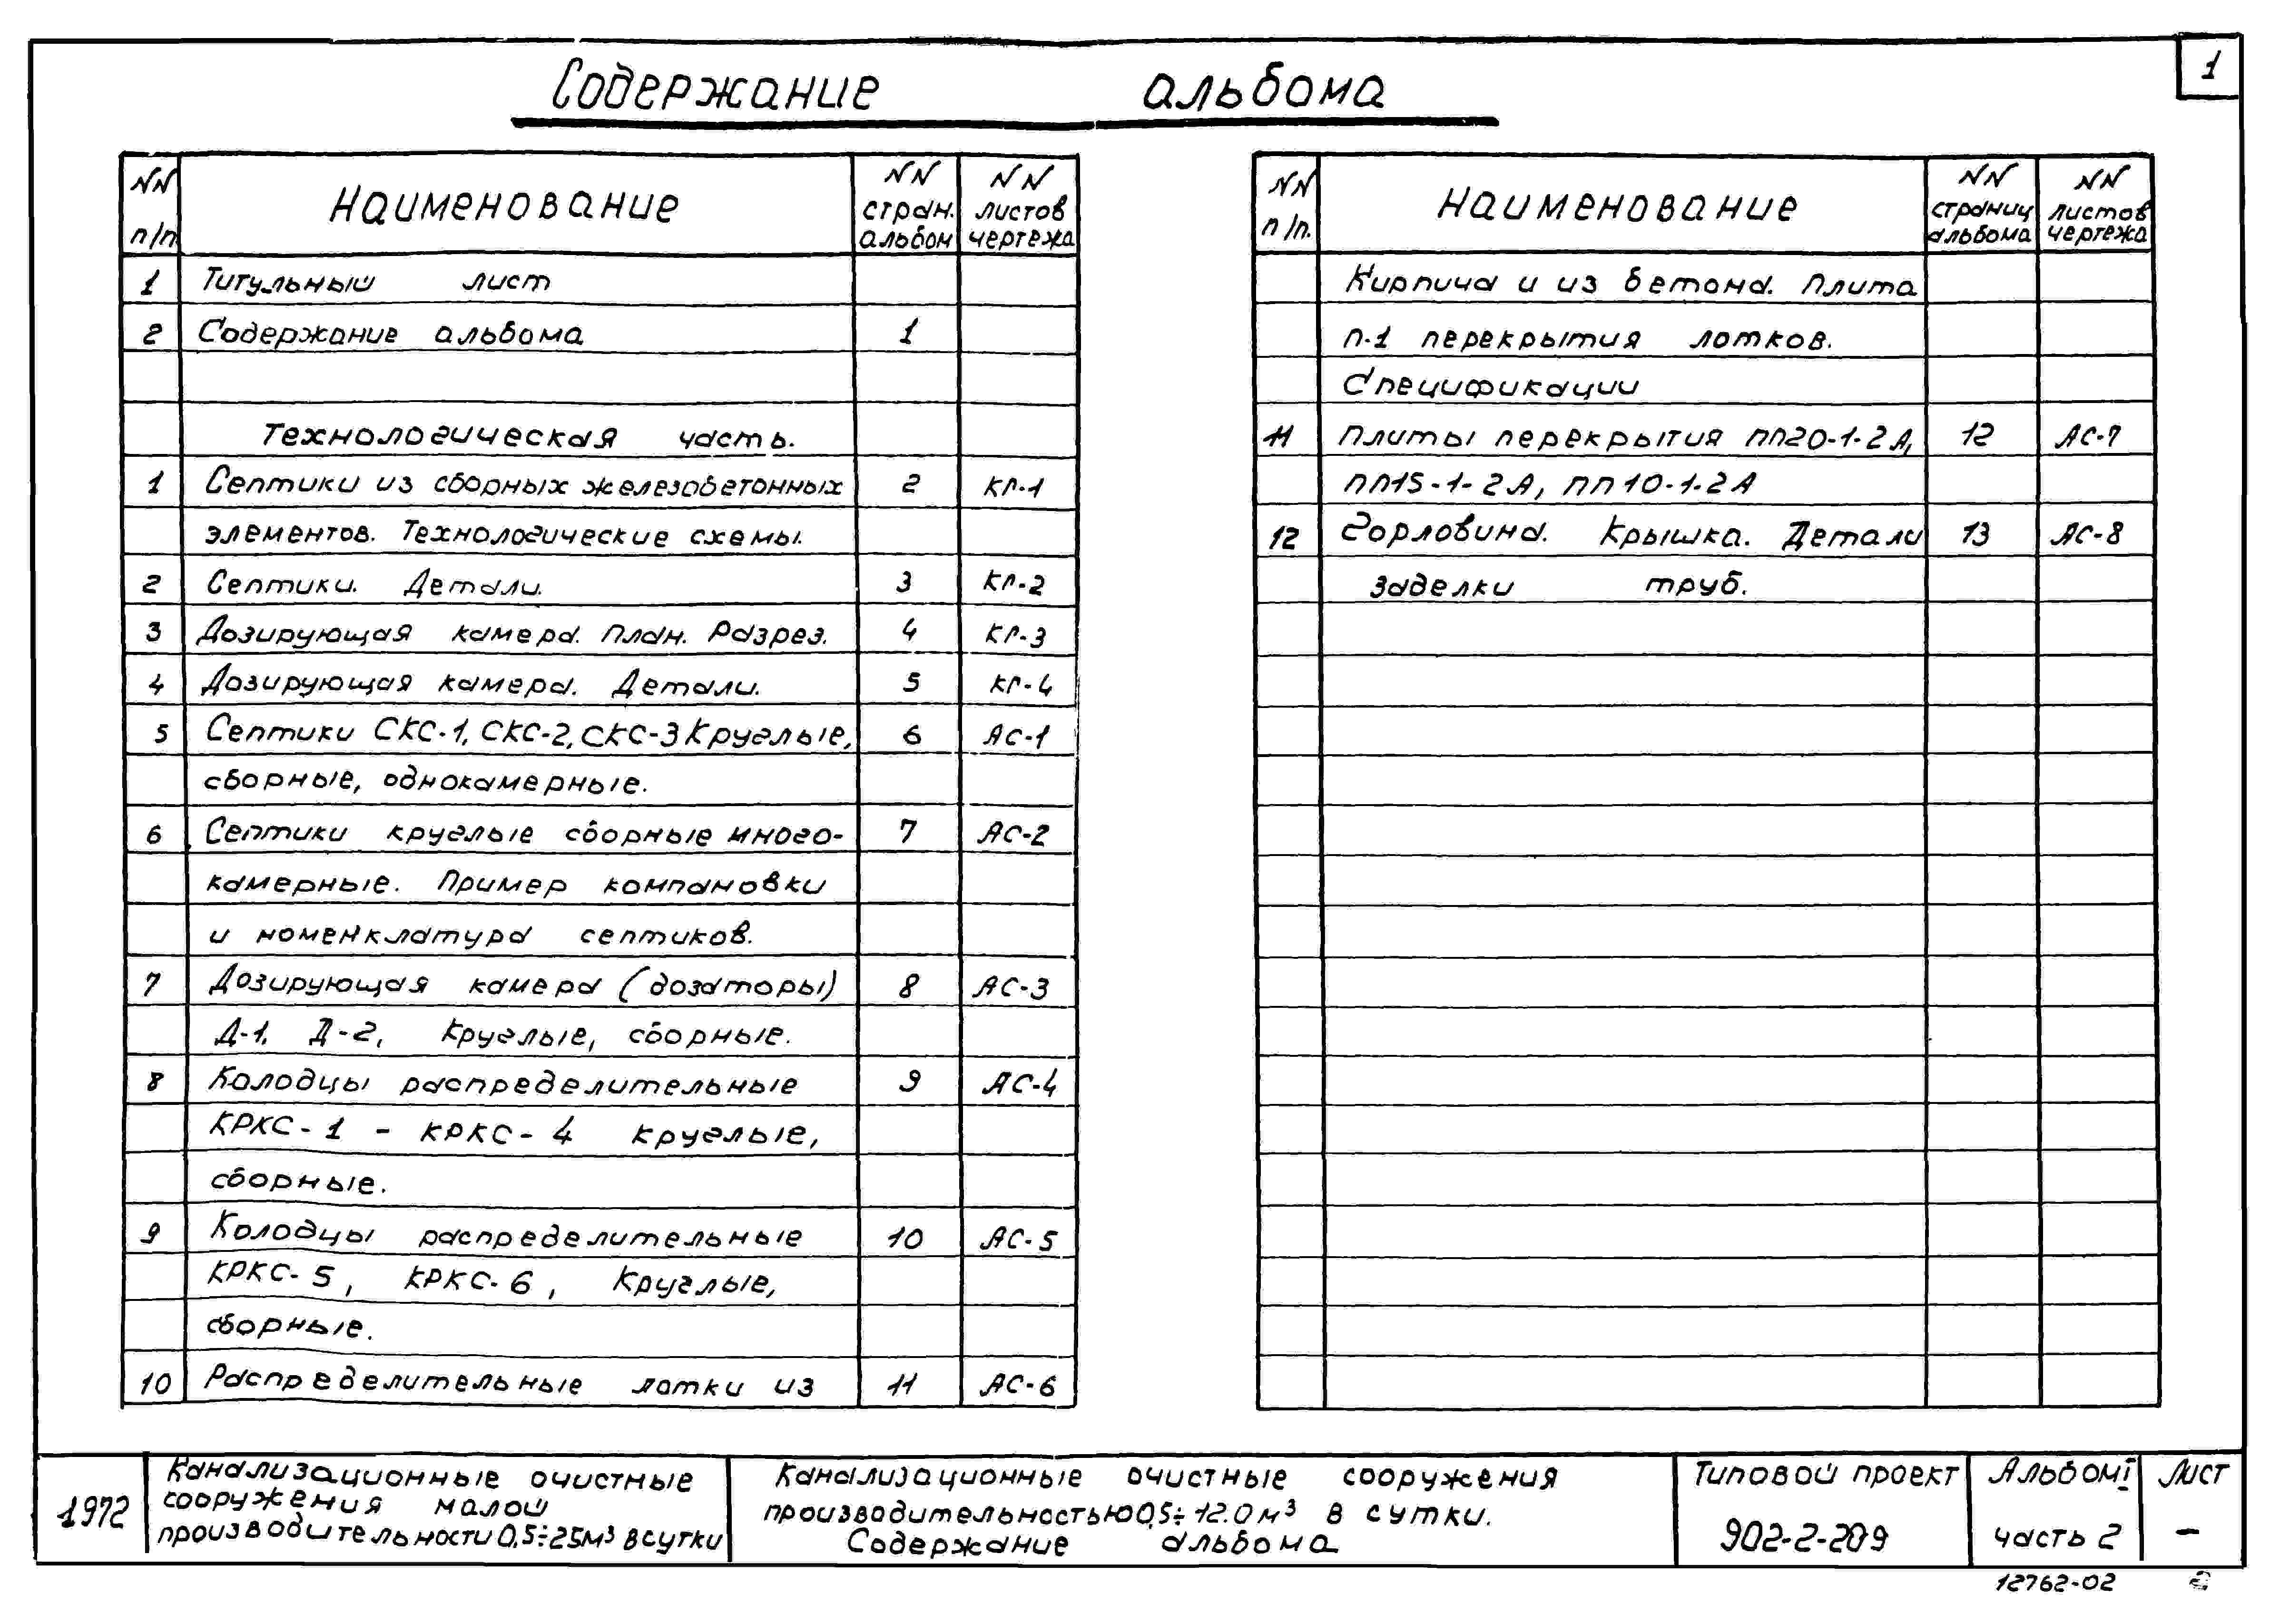 1
Содержание альбома
NN п/п Наименование NN стран. альбом NN листов чертежа
1 Титульный лист
2 Содержание альбома 1
Технологическая часть.
1 Септики из сборных железобетонных 2 КГ-1
элементов. Технологические схемы.
2 Септики. Детали. 3 КГ-2
3 Дозирующая камера. План. Разрез. 4 КГ-3
4 Дозирующая камера. Детали. 5 КГ-4
5 Септики СКС-1, СКС-2, СКС-3 Круглые, 6 АС-1
сборные, однокамерные.
6 Септики круглые сборные много- 7 АС-2
камерные. Пример компановки
и номенклатура септиков.
7 Дозирующая камера (дозаторы) 8 АС-3
Д-1, Д-2, Круглые, сборные.
8 Колодцы распределительные 9 АС-4
КРКС-1 - КРКС-4 круглые,
сборные.
9 Колодцы распределительные 10 АС-5
КРКС-5, КРКС-6, Круглые,
сборные.
10 Распределительные лотки из 11 АС-6
NN п/п. Наименование NN страниц альбома NN листов чертежа
Кирпича и из бетона. Плита
п-1 перекрытия лотков.
Спецификации
11 Плиты перекрытия ПП20-1-2А, 12 АС-7
ПП15-1-2А, ПП10-1-2А
12 Горловина. Крышка. Детали 13 АС-8
заделки труб.
1972
Канализационные очистные
сооружения малой
производительности 0,5÷25м³ в сутки
Канализационные очистные сооружения
производительностью 0,5÷12.0 м³ в сутки.
Содержание альбома
Типовой проект
902-2-209
Альбом I
часть 2
Лист
–
12762-02 2